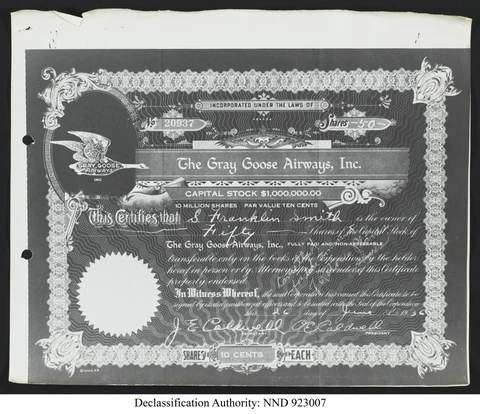 INCORPORATED UNDER THE LAWS OF
No 20937
Shares -50-
The Gray Goose Airways, Inc.
GRAY GOOSE
AIRWAYS
INC
CAPITAL STOCK $1,000,000.00
10 MILLION SHARES PAR VALUE TEN CENTS
This Certifies that S Franklin Smith is the owner of
Fifty Shares of the Capital Stock of
The Gray Goose Airways, Inc., FULLY PAID AND NON-ASSESSABLE
transferable only on the books of the Corporation by the holder
hereof in person or by Attorney upon surrender of this Certificate
properly endorsed.
In Witness Whereof, the said Corporation has caused this Certificate to be
signed by its duly authorized officers and to be sealed with the Seal of the Corporation
this 26 day of June A.D. 1936
J E Caldwell
Caldwell
SECRETARY
PRESIDENT
SHARES 10 CENTS EACH
Declassification Authority: NND 923007